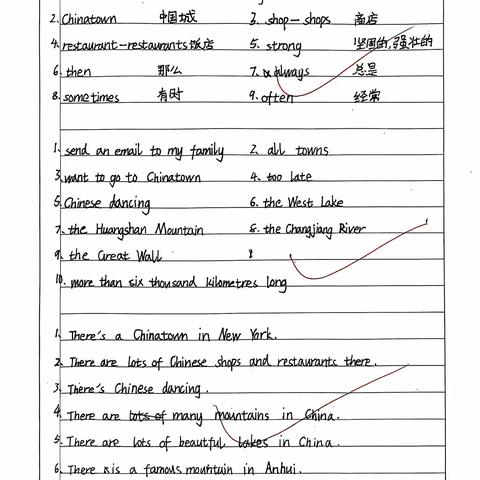 2. Chinatown 中国城 3. shop-shops 商店
4. restaurant-restaurants 饭店 5. strong 坚固的,强壮的
6. then 那么 7. always 总是
8. sometimes 有时 9. often 经常
1. send an email to my family 2. all towns
3. want to go to Chinatown 4. too late
5. Chinese dancing 6. the West Lake
7. the Huangshan Mountain 8. the Changjiang River
9. the Great Wall
10. more than six thousand kilometres long
1. There's a Chinatown in New York.
2. There are lots of Chinese shops and restaurants there.
3. There's Chinese dancing.
4. There are lots of many mountains in China.
5. There are lots of beautiful lakes in China.
6. There is a famous mountain in Anhui.